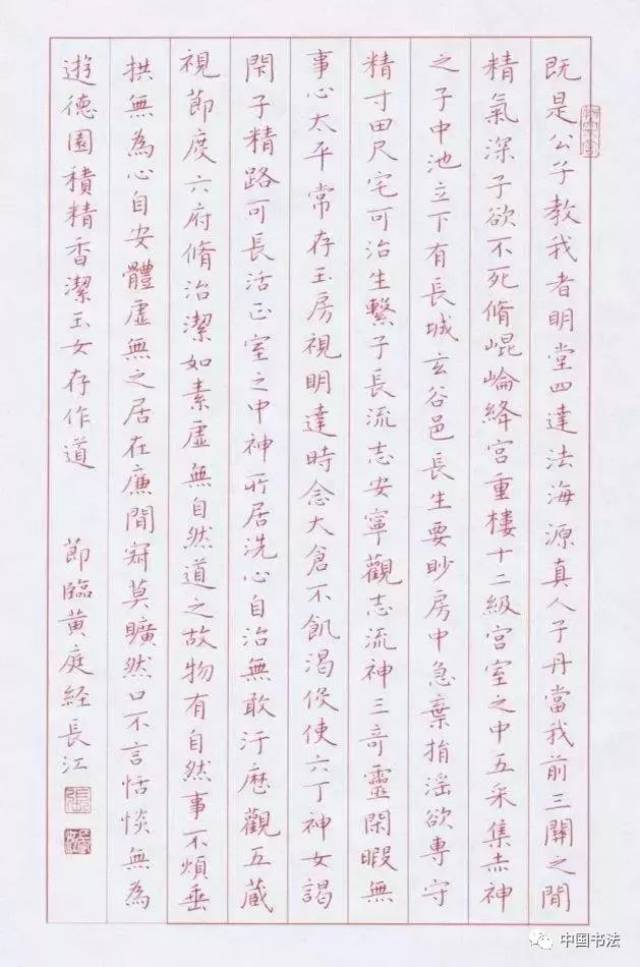 既是公子教我者明堂四達法海源真人子丹當我前三關之間
精氣深子欲不死脩崐崘絳宮重樓十二級宮室之中五采集赤神
之子中池立下有長城玄谷邑長生要眇房中急棄捐滛欲專守
精寸田尺宅可治生繫子長流志安寧觀志流神三奇靈閑暇無
事心太平常存玉房視明達時念大倉不飢渴伇使六丁神女謁
閇子精路可長活正室之中神所居洗心自治無敢汙歷觀五藏
視節度六府脩治潔如素虛無自然道之故物有自然事不煩垂
拱無為心自安體虛無之居在廉間寂莫曠然口不言恬惔無為
遊德園積精香潔玉女存作道
節臨黃庭經長江
中国书法